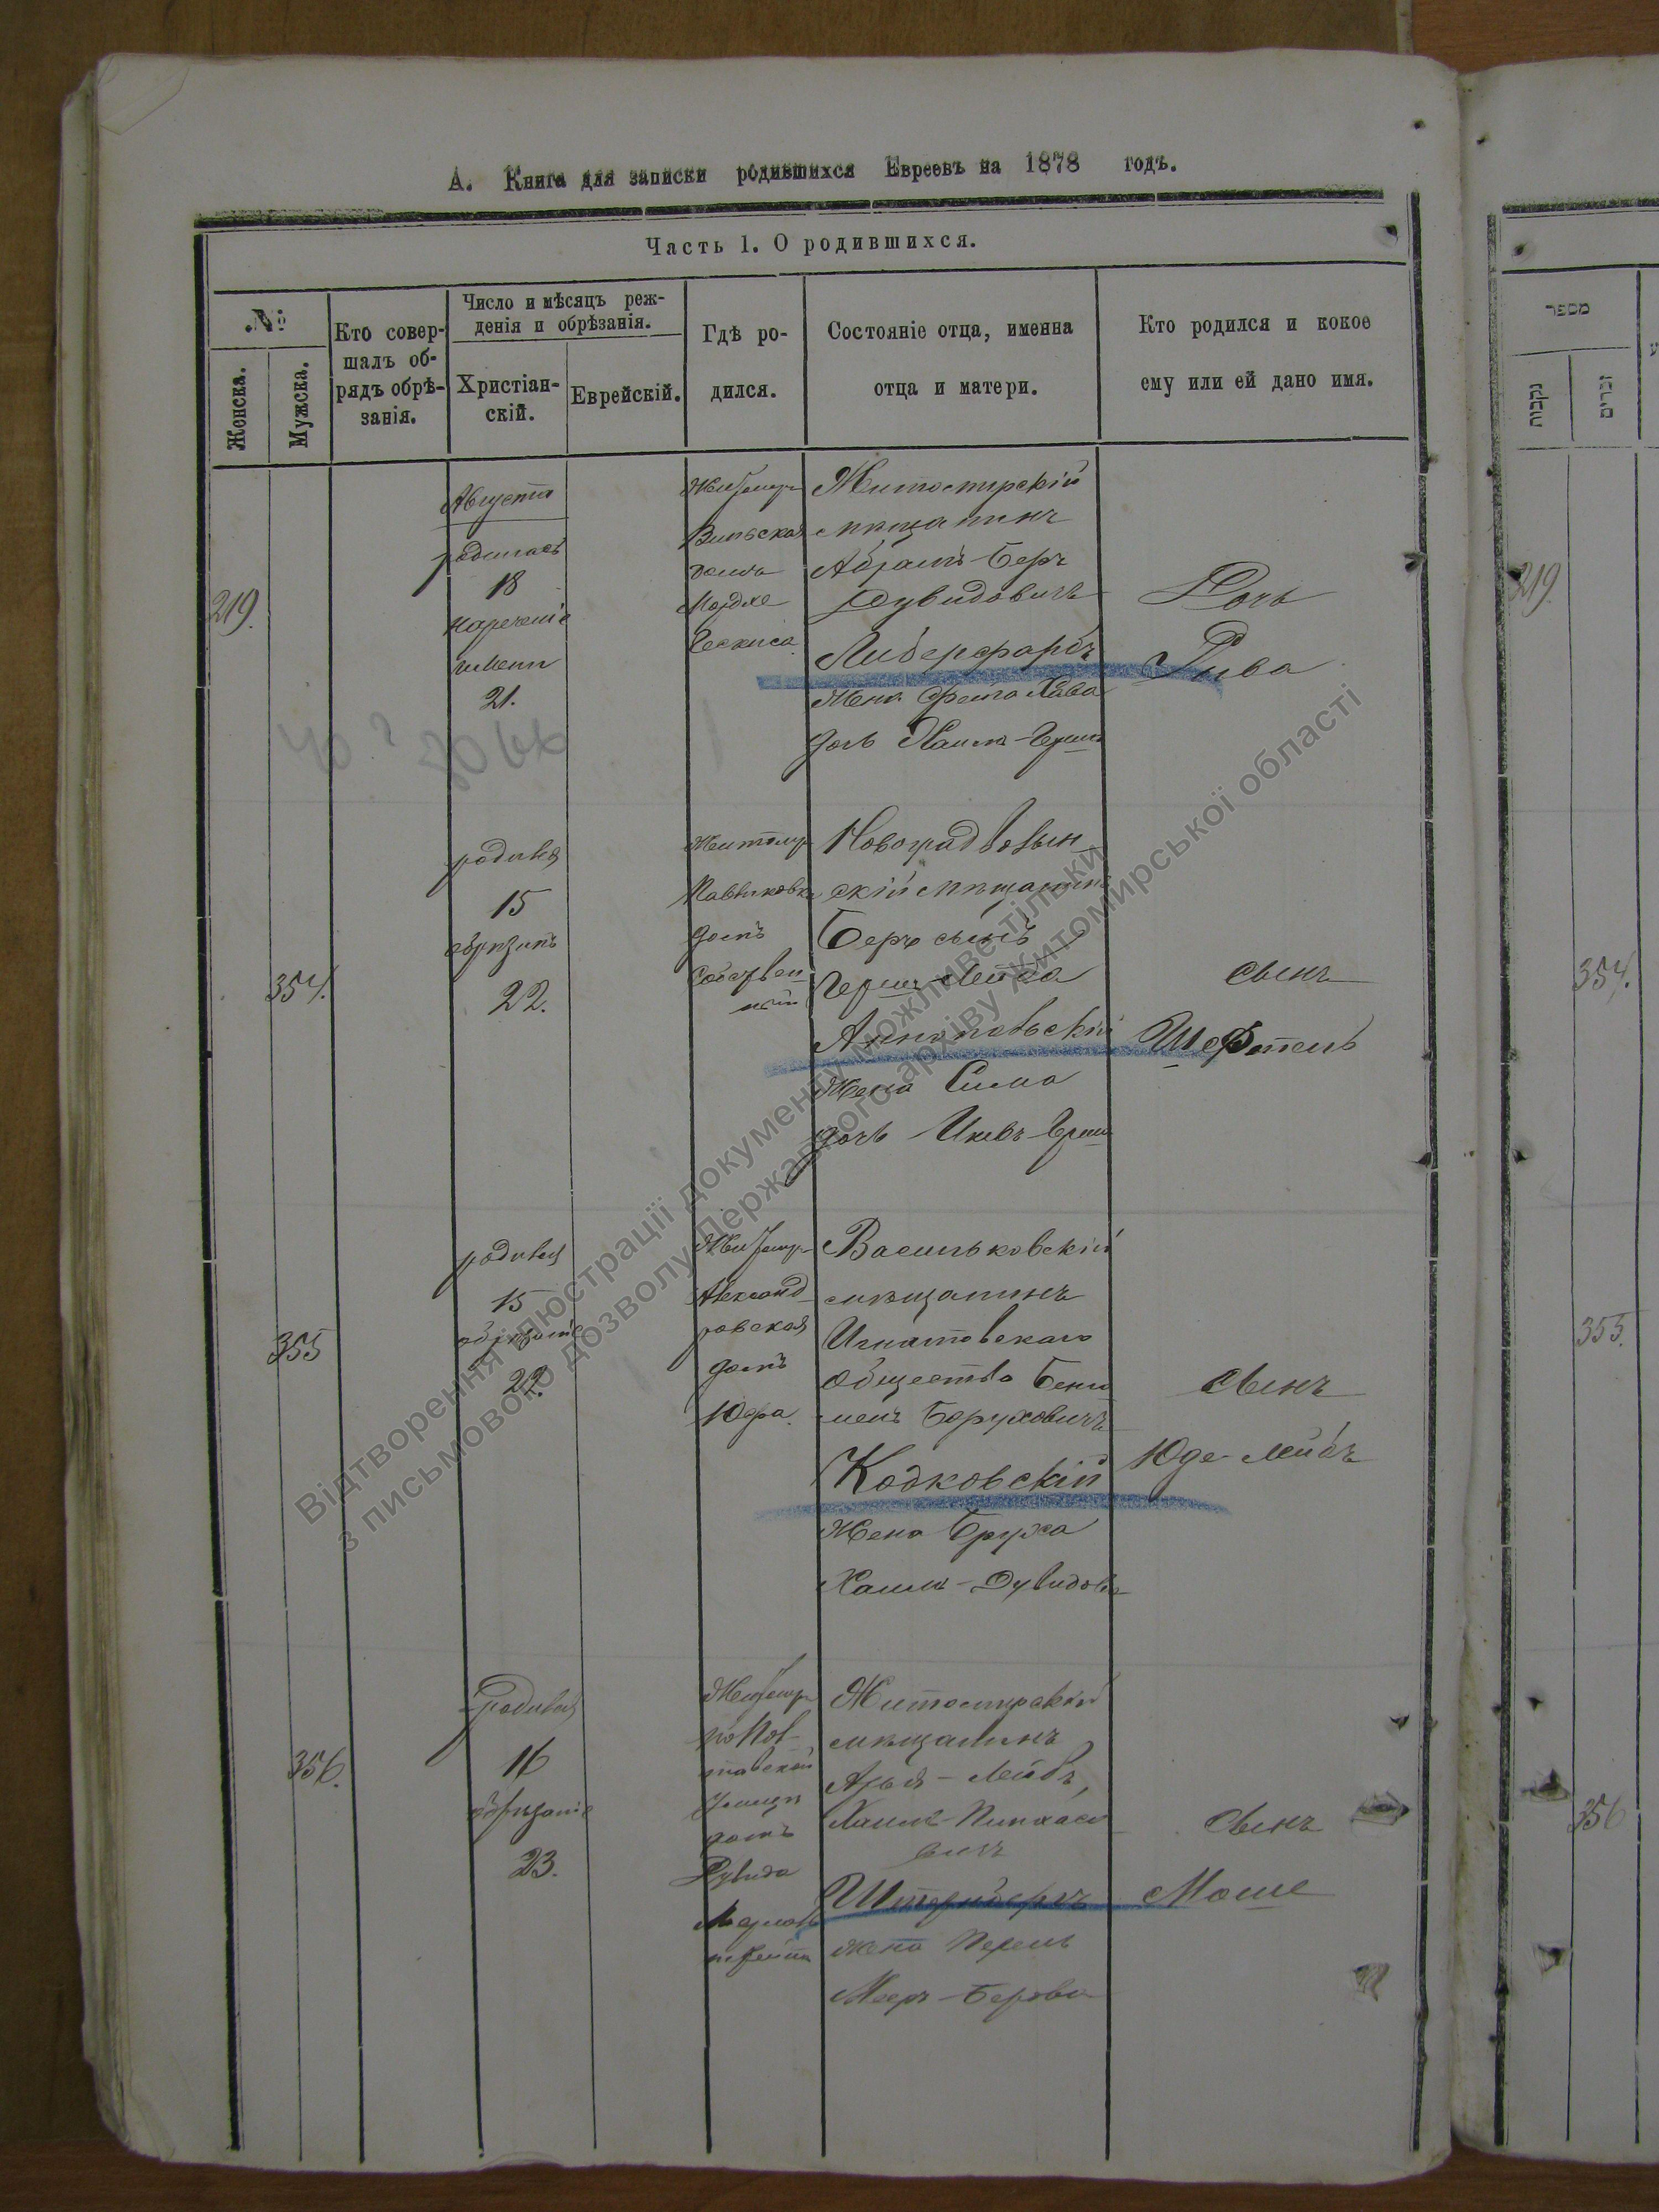 А. Книга для записки родившихся Евреевъ на 1878 годъ.
Часть 1. О родившихся.
№
Женска.
Мужска.
Кто совер-
шалъ об-
рядъ обрѣ-
занія.
Число и мѣсяцъ рож-
денія и обрѣзанія.
Христіан-
скій.
Еврейскій.
Гдѣ ро-
дился.
Состояніе отца, именна
отца и матери.
Кто родился и кокое
ему или ей дано имя.
219.
Августа
родилась
18
нареченіе
имени
21.
Вильская
Житомирскій
мѣщанинъ
Абрамъ-Беръ
Дувидовичъ
Либерфарбъ
Жена Фрейга Хава
дочь Хаимъ-Герша
Дочь
Рива
354.
родился
15
обрѣзанъ
22.
Житомир
Павликовка
домъ
Собствен
ный
Новоградволын
скій мѣщанинъ
Беръ сынъ
Гершъ-Лейба
Аннопольскій
Жена Сима
дочь Ицко-Герша
сынъ
Шефтель
355
родился
15
обрѣзаніе
22.
Александ
ровская
домъ
Юфа
Васильковскій
мѣщанинъ
Игнатовскаго
общества Бенья
менъ Боруховичъ
Кодковскій
Жена Бруха
Хаимъ-Дувидова
сынъ
Юде-Лейбъ
356.
родился
16
обрѣзаніе
23.
по Пол
тавской
улицѣ
домъ
Дувида
Житомирскій
мѣщанинъ
Арья-Лейбъ
Хаимъ-Пинхасо
вичъ
Штернберхъ
жена Перель
Мееръ-Берова
сынъ
Моше
מספר
נקבות
זכרים
219.
354.
355.
356
Відтворення ілюстрації документу можливе тільки
з письмового дозволу Державного архіву Житомирської області